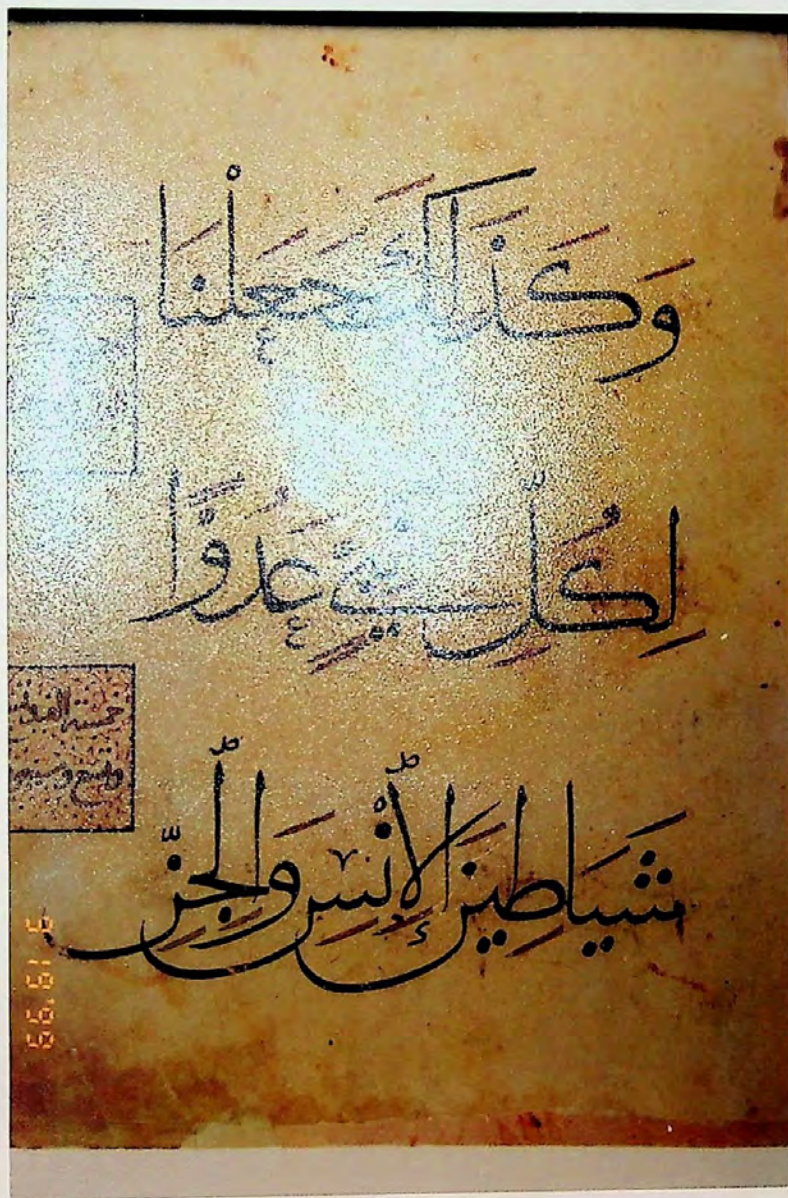 وَكَذَالِكَ جَعَلْنَا
لِكُلِّ نَبِيٍّ عَدُوًّا
شَيَاطِينَ الْإِنْسِ وَالْجِنِّ
خمسة
9 19 '99